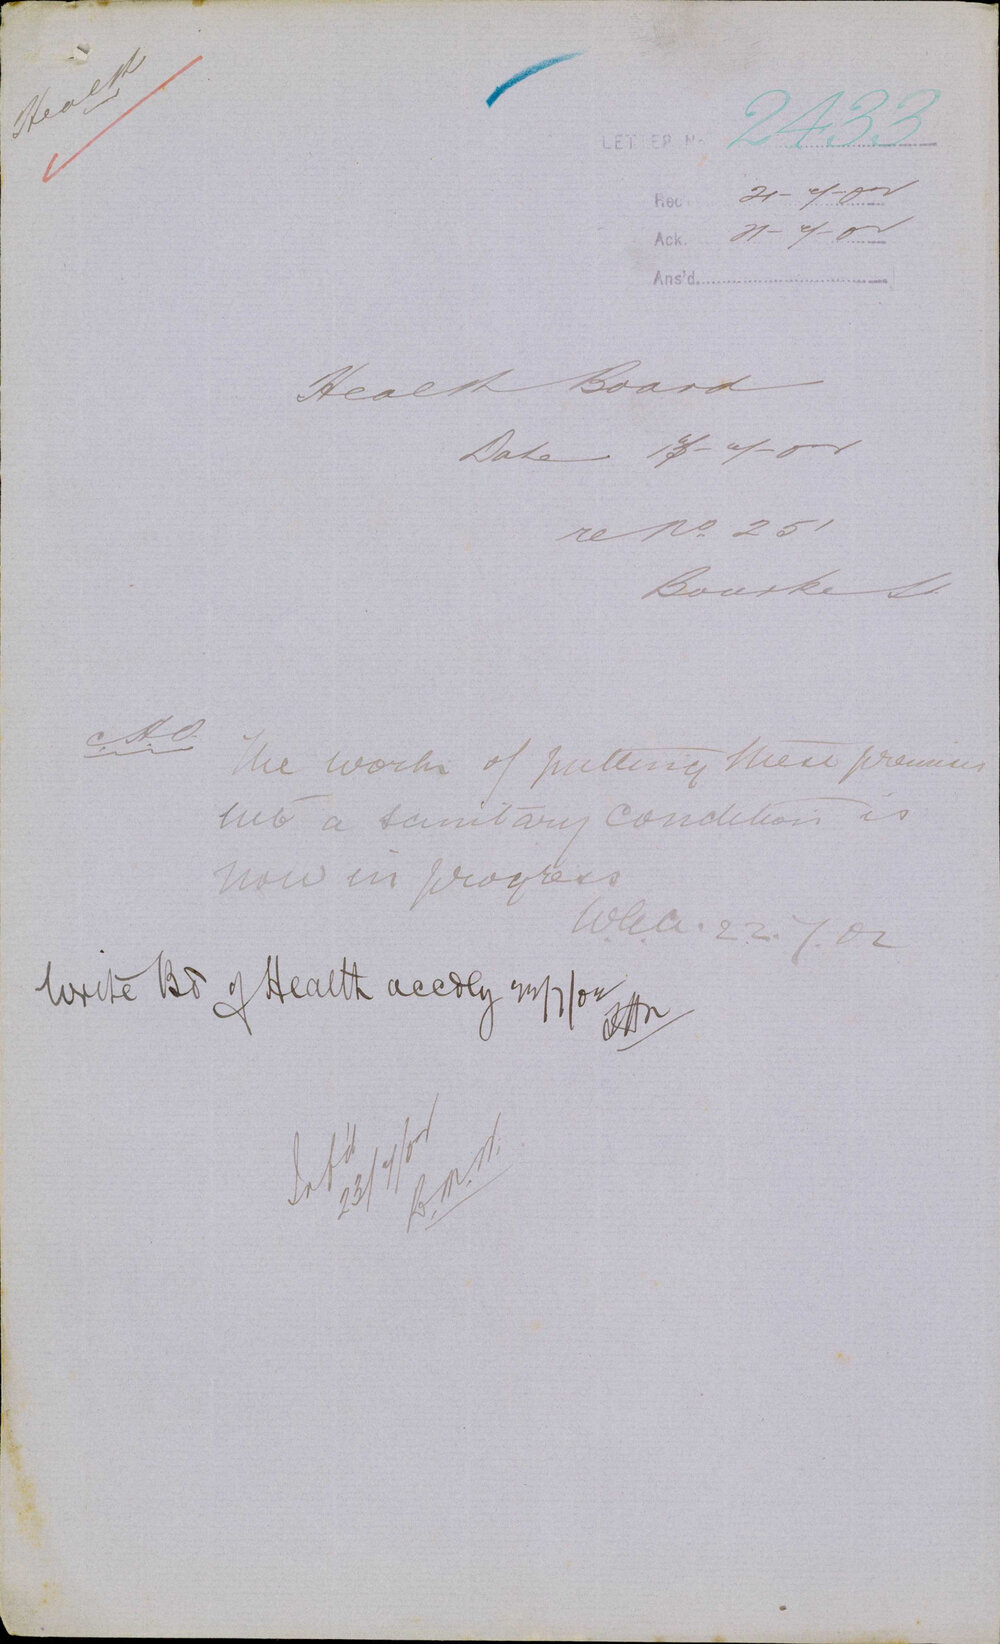 Health
LETTER No. 2433
Rec 21-7-02
Ack. 21-7-02
Ans'd.
Health Board
Date 18-7-02
re No. 251
Bourke St.
C.H.O.
The work of putting these premises
into a sanitary condition is
now in progress
W.G.A. 22.7.02
Write Bd of Health accdly 22/7/02
Inf'd
23/7/02
B.M.H.